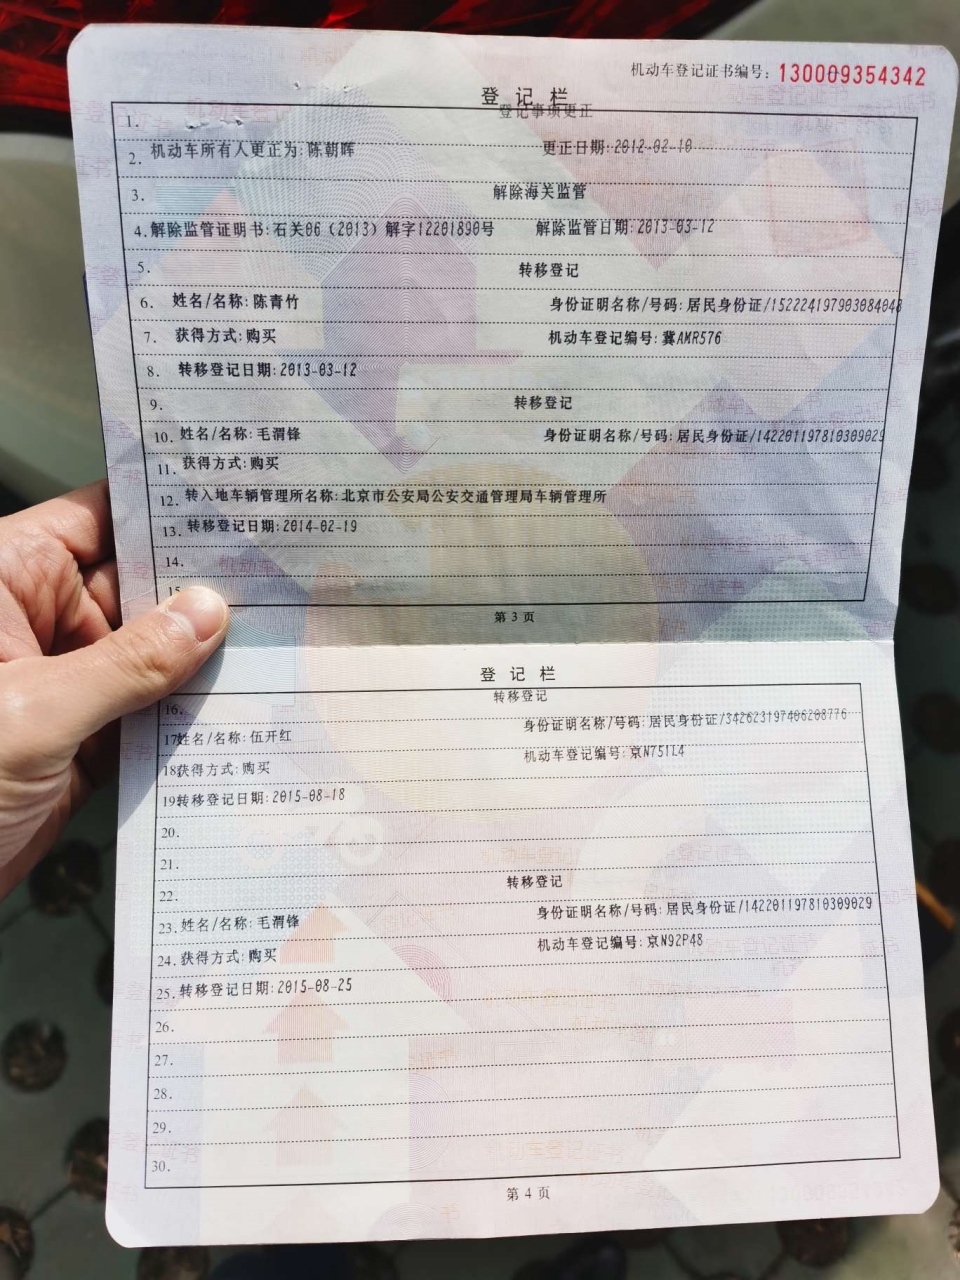 机动车登记证书编号：130009354342
登记栏
1. 登记事项更正
2. 机动车所有人更正为:陈朝晖 更正日期:2012-02-10
3. 解除海关监管
4. 解除监管证明书:石关06（2013）解字12201890号 解除监管日期:2013-03-12
5. 转移登记
6. 姓名/名称:陈青竹 身份证明名称/号码:居民身份证/152224197903084048
7. 获得方式:购买 机动车登记编号:冀AMR576
8. 转移登记日期:2013-03-12
9. 转移登记
10. 姓名/名称:毛渭锋 身份证明名称/号码:居民身份证/142201197810309029
11. 获得方式:购买
12. 转入地车辆管理所名称:北京市公安局公安交通管理局车辆管理所
13. 转移登记日期:2014-02-19
14.
15
第 3 页
登记栏
16. 转移登记
17 姓名/名称:伍开红 身份证明名称/号码:居民身份证/342623197406208776
18 获得方式:购买 机动车登记编号:京N751L4
19 转移登记日期:2015-08-18
20.
21.
22. 转移登记
23. 姓名/名称:毛渭锋 身份证明名称/号码:居民身份证/142201197810309029
24. 获得方式:购买 机动车登记编号:京N92P48
25. 转移登记日期:2015-08-25
26.
27.
28.
29.
30.
第 4 页